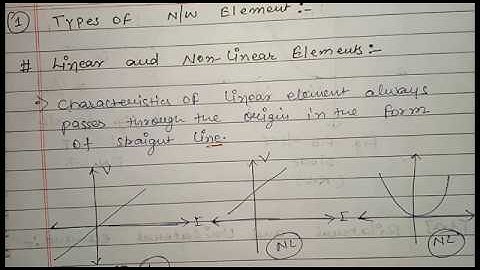 ① Types of N/W Element:-
# Linear and Non-Linear Elements:-
→ Characteristics of linear element always
passes through the origin in the form
of straigut line.
V V
I I
NL NL